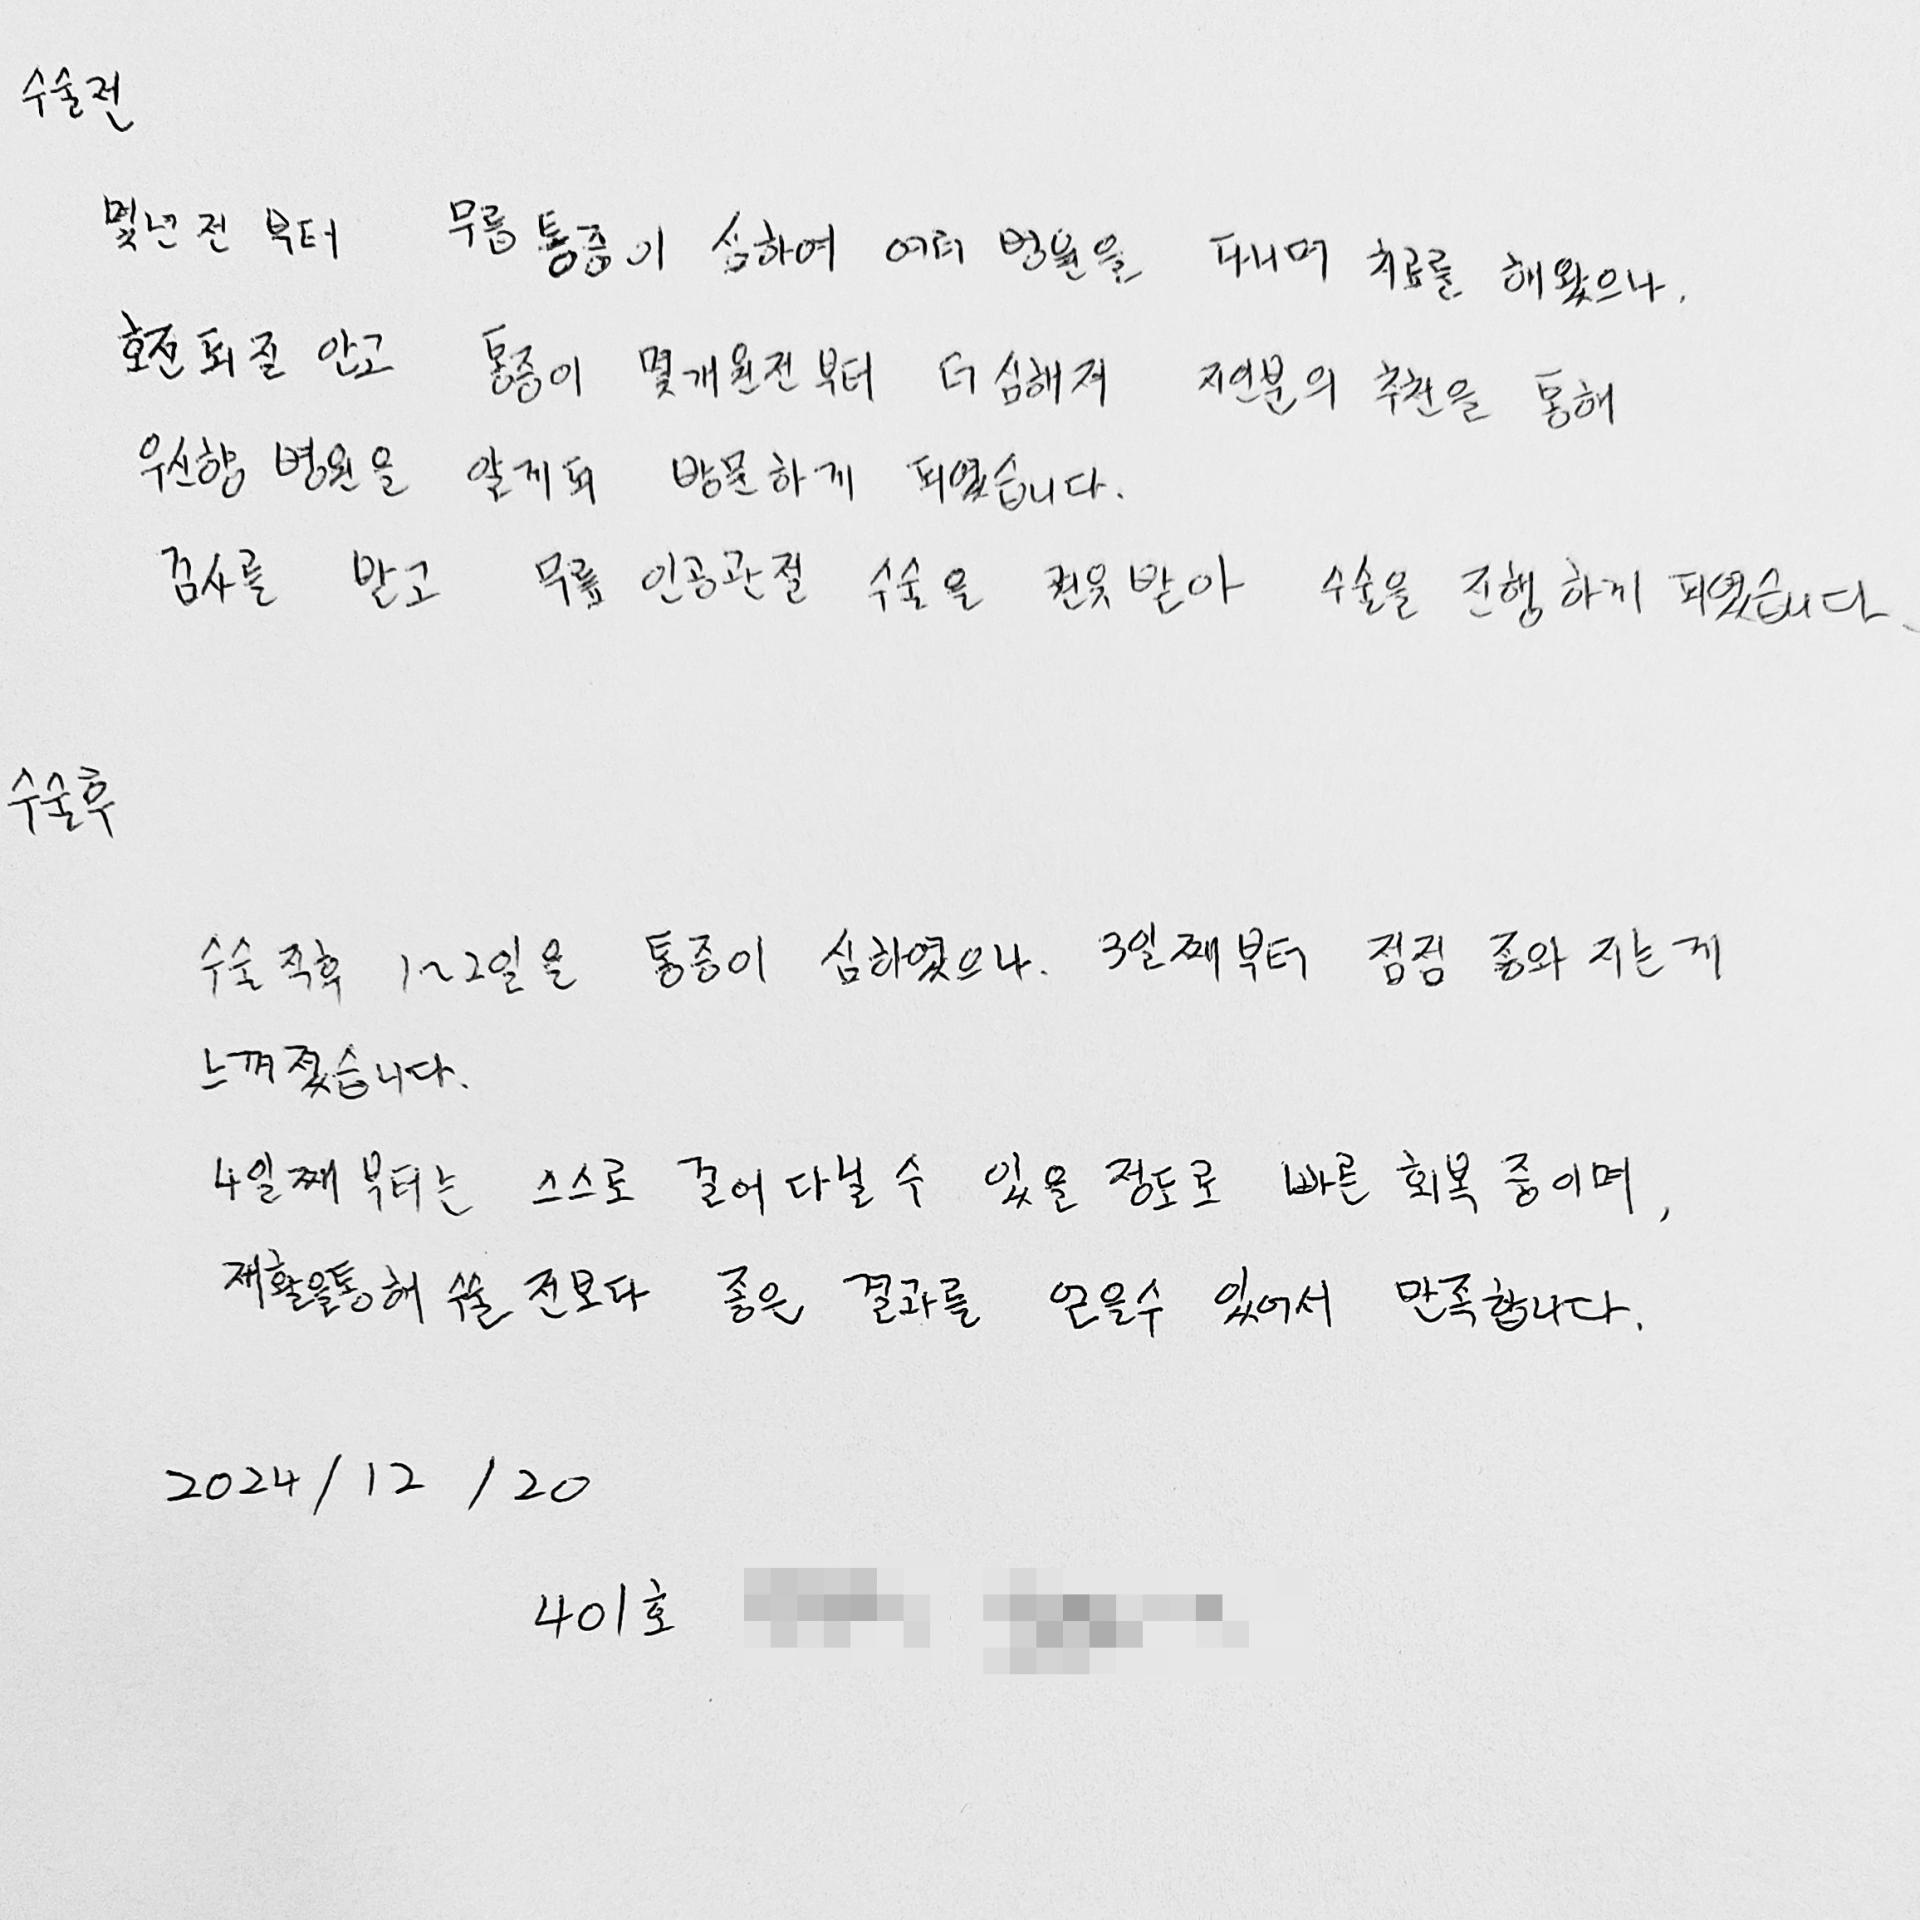 수술전
몇년전 부터 무릎 통증이 심하여 여러 병원을 다니며 치료를 해왔으나.
호전되질 안고 통증이 몇개월전부터 더 심해져 지인분의 추천을 통해
병원을 알게되 방문하게 되였습니다.
검사를 받고 무릎 인공관절 수술을 권유받아 수술을 진행하게 되였습니다.
수술후
수술 직후 1~2일은 통증이 심하였으나. 3일째부터 점점 좋와 지는게
느껴졌습니다.
4일째 부터는 스스로 걸어다닐 수 있을 정도로 빠른 회복 중이며,
재활을통해 수술 전보다 좋은 결과를 얻을수 있어서 만족합니다.
2024/12/20
401호